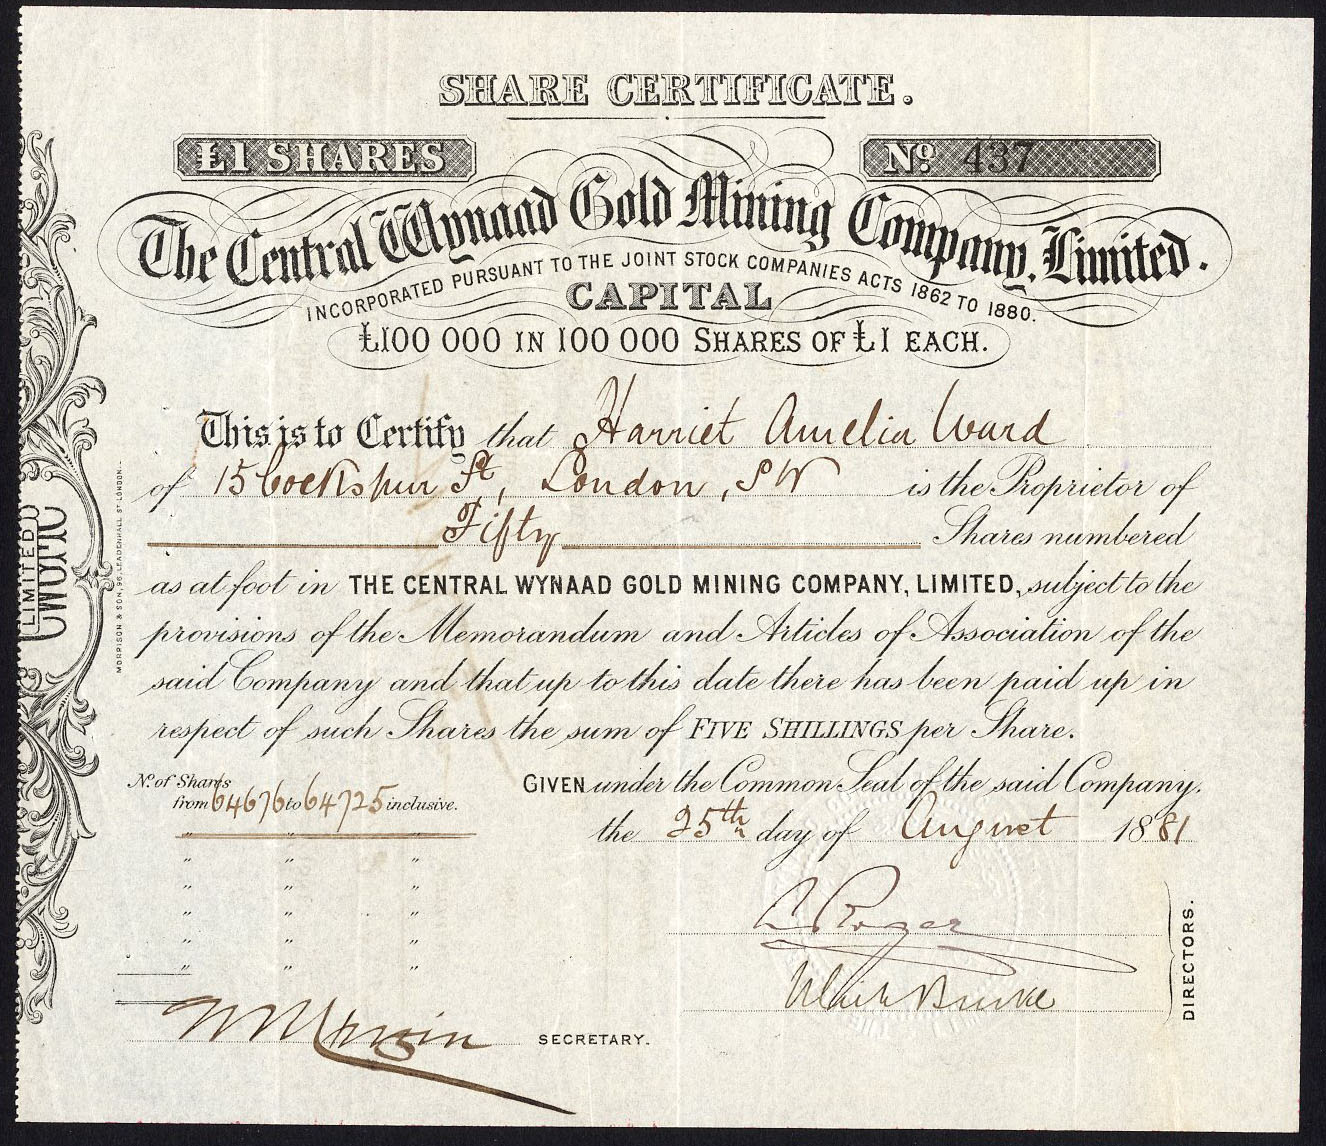 SHARE CERTIFICATE.
£1 SHARES
No. 437
The Central Wynaad Gold Mining Company, Limited.
INCORPORATED PURSUANT TO THE JOINT STOCK COMPANIES ACTS 1862 TO 1880.
CAPITAL
£100 000 IN 100 000 SHARES OF £1 EACH.
This is to Certify that Harriet Amelia Ward
of 15 Cockspur St, London, SW is the Proprietor of
Fifty Shares numbered
as at foot in THE CENTRAL WYNAAD GOLD MINING COMPANY, LIMITED, subject to the
provisions of the Memorandum and Articles of Association of the
said Company and that up to this date there has been paid up in
respect of such Shares the sum of FIVE SHILLINGS per Share.
No. of Shares
from 64676 to 64725 inclusive.
GIVEN under the Common Seal of the said Company.
the 25th day of August 1881
" " "
" " "
" " "
" " "
" " "
" " "
DIRECTORS.
SECRETARY.
MORRISON & SON, 96, LEADENHALL ST LONDON.
LIMITED